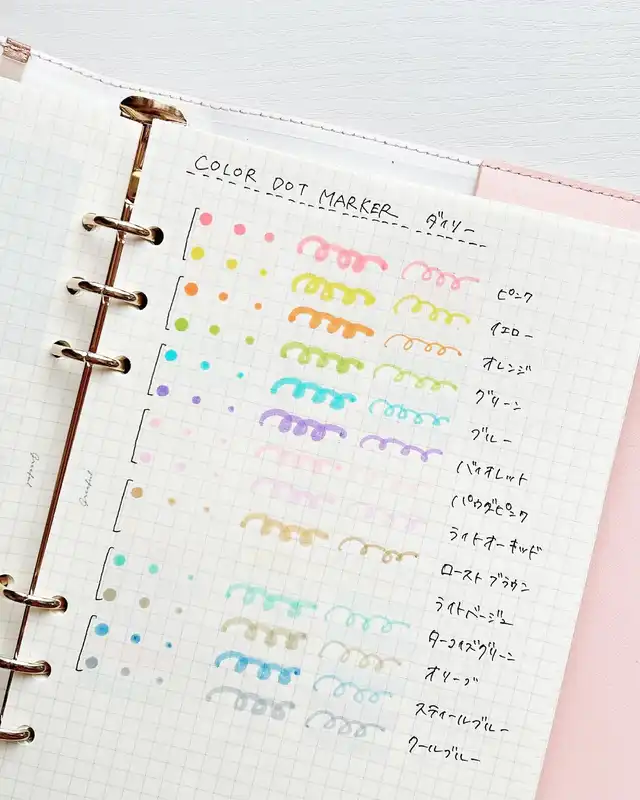 COLOR DOT MARKER ダイソー
ピンク
イエロー
オレンジ
グリーン
ブルー
バイオレット
パウダピンク
ライトオーキッド
ローストブラウン
ライトベージュ
ターコイズグリーン
オリーブ
スティールブルー
クールブルー